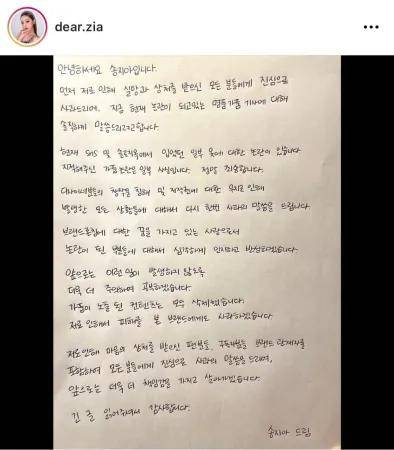 dear.zia
안녕하세요 송지아입니다.
먼저 저로 인해 실망과 상처를 받으신 모든 분들에게 진심으로
사과드리며, 지금 현재 논란이 되고있는 명품가품 기사에 대해
솔직하게 말씀드리려고합니다.
현재 SNS 및 솔로지옥에서 입었던 일부 옷에 대한 논란이 있습니다
지적해주신 가품논란은 일부 사실입니다. 정말 죄송합니다.
디자이너분들의 창작물 침해 및 저작권에 대한 무지로 인해
발생한 모든 상황들에 대해서 다시 한번 사과의 말씀을 드립니다.
브랜드론칭에 대한 꿈을 가지고 있는 사람으로서
논란이 된 부분들에 대해서 심각하게 인지하고 반성하겠습니다.
앞으로는 이런일이 발생하지 않도록
더욱 더 주의하며 공부하겠습니다.
가품이 노출 된 컨텐츠는 모두 삭제했습니다.
저로 인해서 피해를 본 브랜드에게도 사과하겠습니다
저로인해 마음의 상처를 받으신 팬분들, 구독자분들 브랜드 관계자를
포함하여 모든분들에게 진심으로 사과의 말씀을 드리며,
앞으로는 더욱 더 책임감을 가지고 살아가겠습니다.
긴 글 읽어주셔서 감사합니다.
송지아 드림